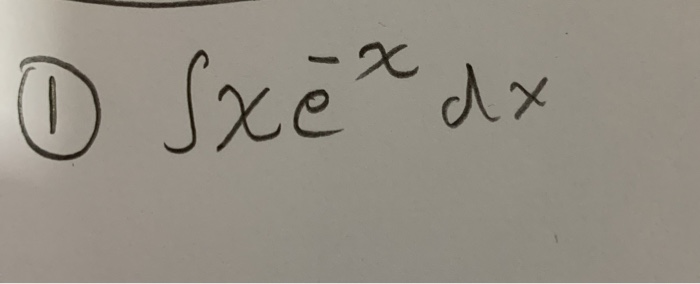 ① ∫xe⁻ˣ dx